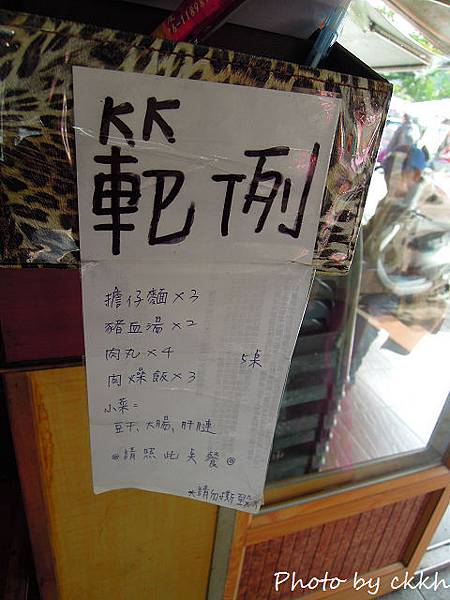 範例
擔仔麵×3
豬血湯×2
肉丸×4
5桌
肉燥飯×3
小菜=
豆干、大腸、肝腱
*請照此點餐*
*請勿撕
Photo by ckkh